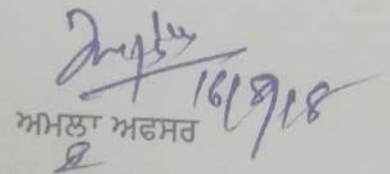 16/8/18
ਅਮਲਾ ਅਫਸਰ